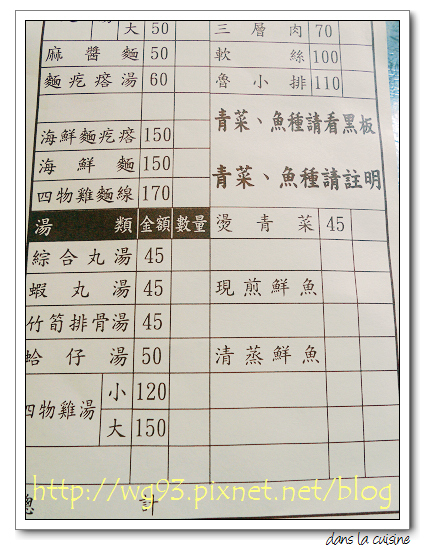 大 50
三層肉 70
麻醬麵 50
軟絲 100
麵疙瘩湯 60
魯小排 110
青菜、魚種請看黑板
海鮮麵疙瘩 150
海鮮麵 150
青菜、魚種請註明
四物雞麵線 170
湯類 金額 數量
燙青菜 45
綜合丸湯 45
蝦丸湯 45
現煎鮮魚
竹筍排骨湯 45
蛤仔湯 50
清蒸鮮魚
四物雞湯 小 120
大 150
http://wg93.pixnet.net/blog
總計
dans la cuisine